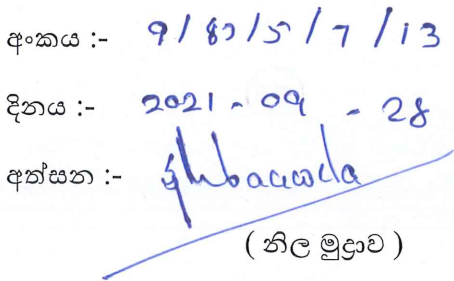 අංකය :- 9/83/5/7/13
දිනය :- 2021 - 09 - 28
අත්සන :-
( නිල මුද්‍රාව )